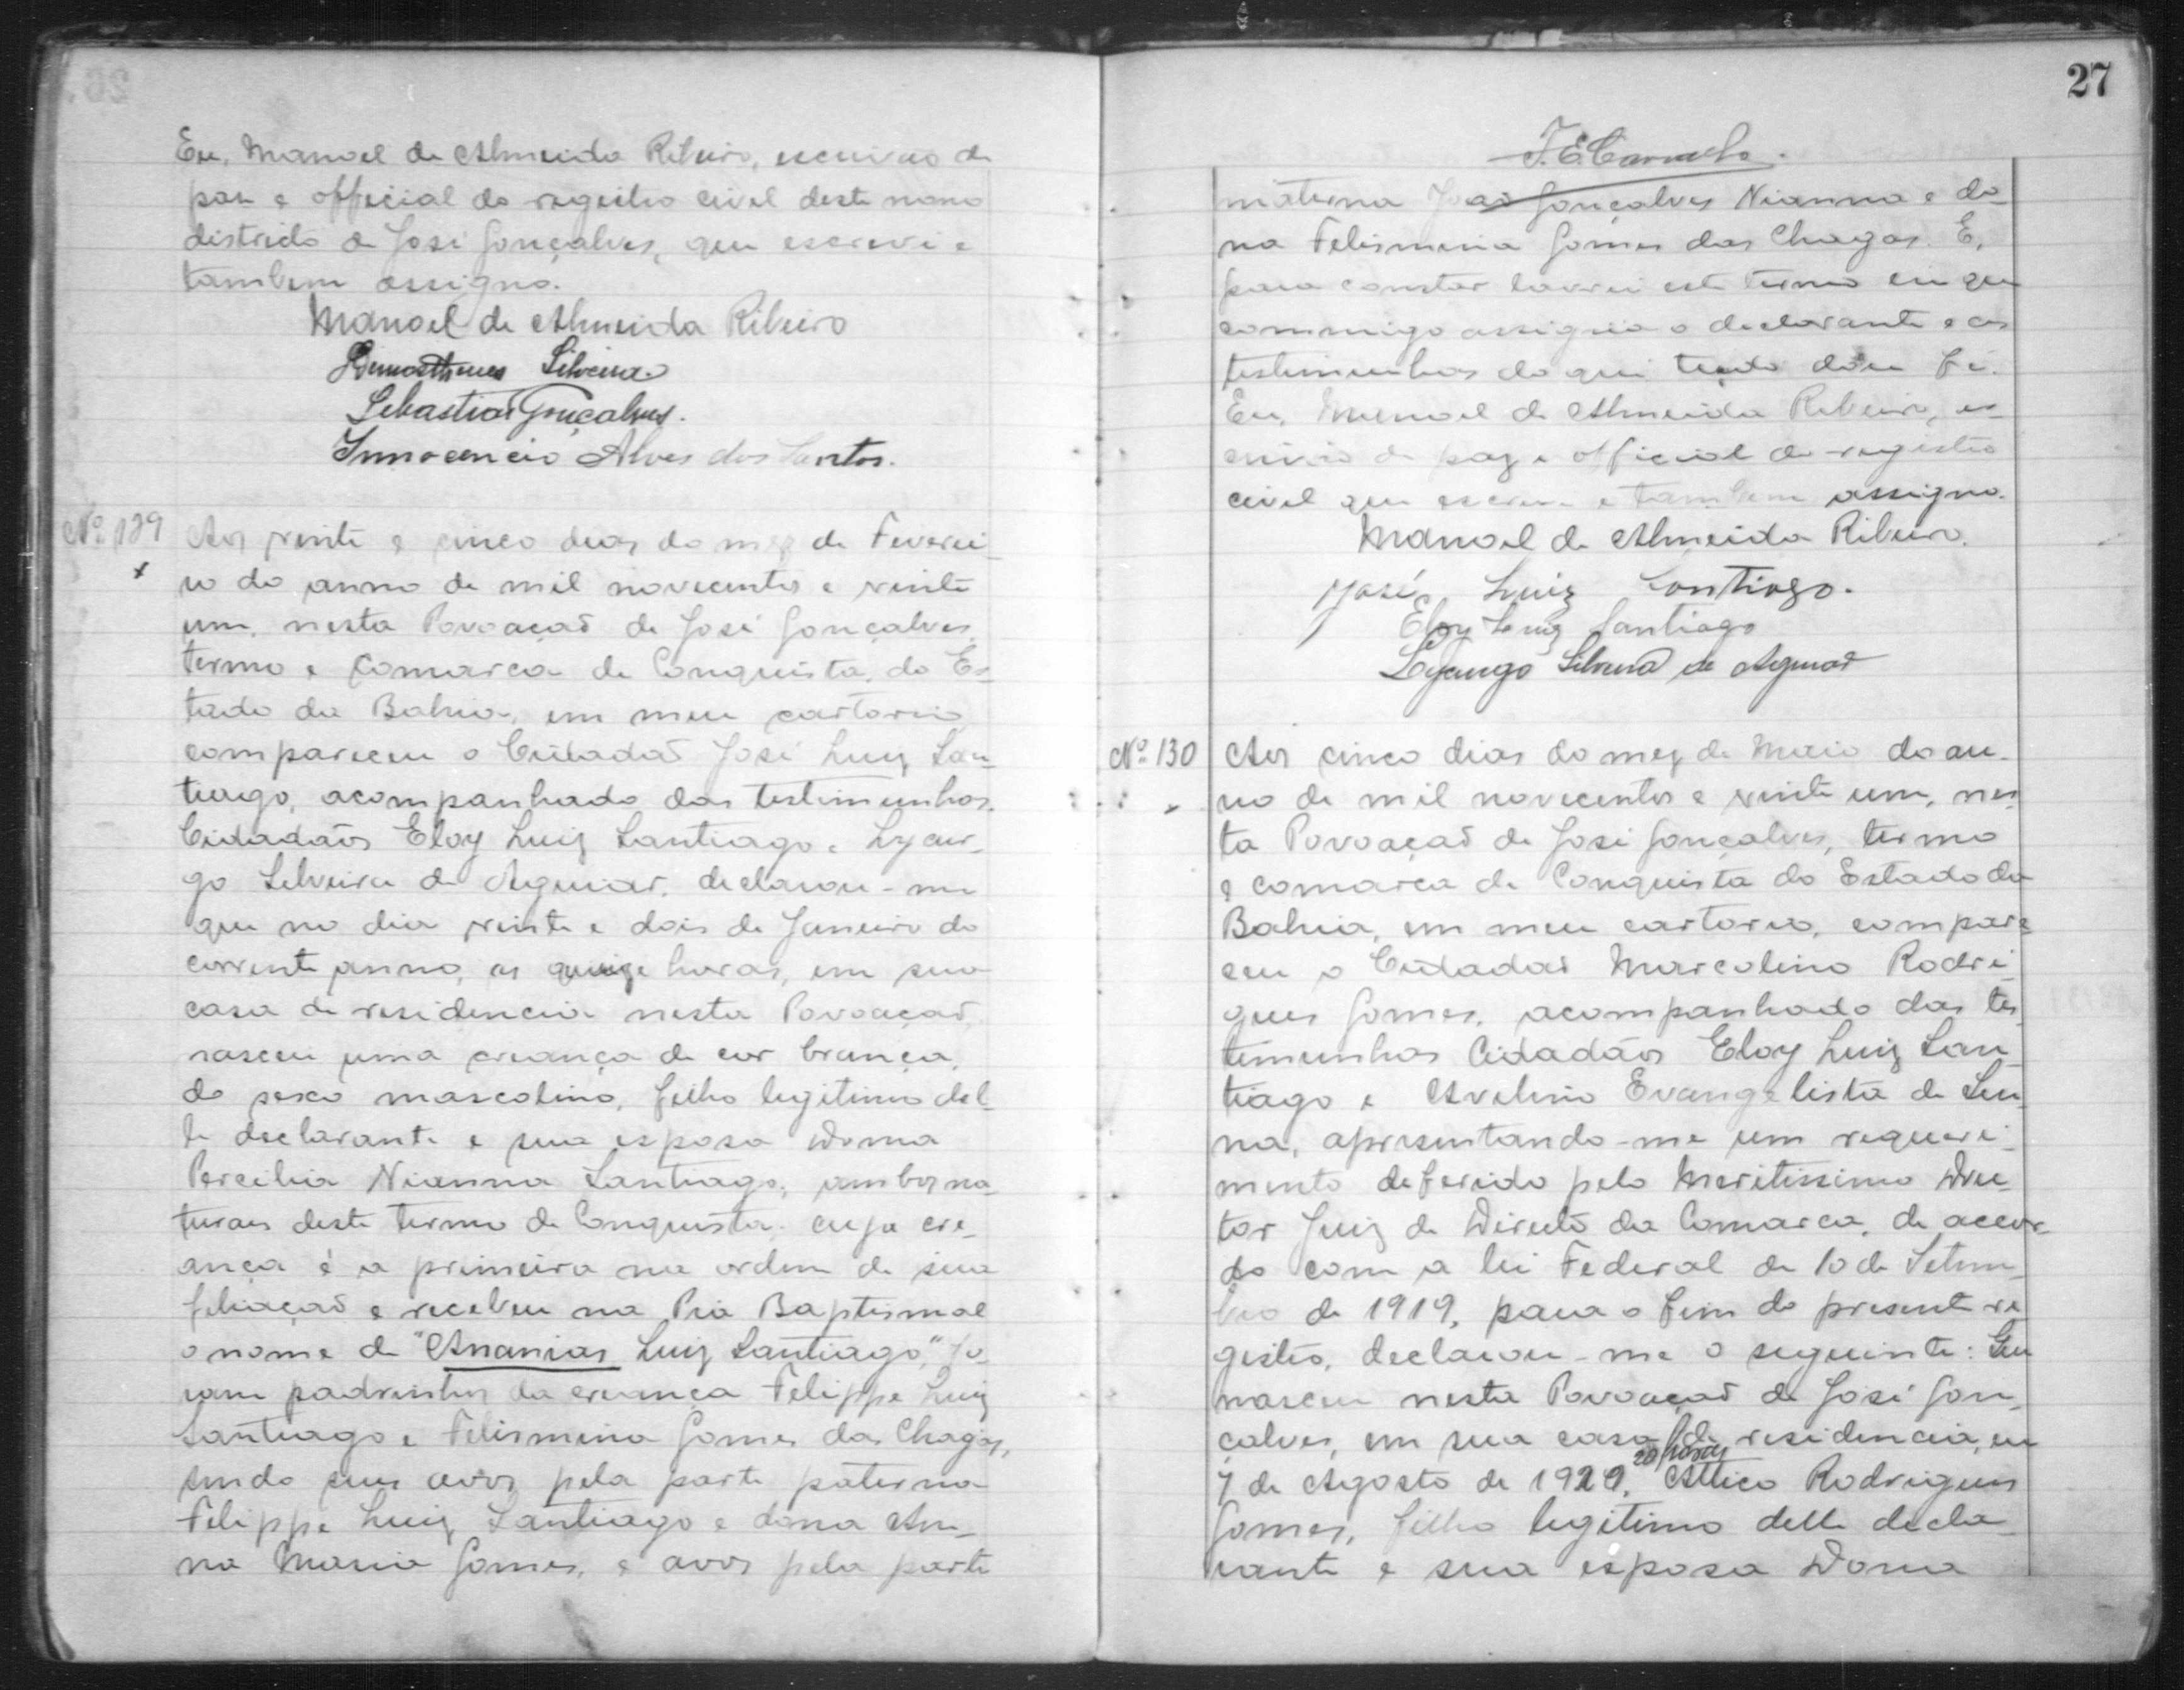 Eu, Manoel de Almeida Ribeiro, escrivão de
paz e official do registro civel deste nono
districto de José Gonçalves, que escrevi e
tambem assigno.
Manoel de Almeida Ribeiro
Demosthenes Silveira
Sebastião Gonçalves.
Innocencio Alves dos Santos.
Nº 129
Aos vinte e cinco dias do mez de Feverei-
ro do anno de mil novecentos e vinte
um, nesta Povoação de José Gonçalves,
termo e Comarca de Conquista, do Es-
tado da Bahia, em meu cartorio
compareceu o Cidadão José Luiz San-
tiago, acompanhado das testimunhas.
Cidadãos Eloy Luiz Santiago e Lycur-
go Silveira de Aguiar, declarou-me
que no dia vinte e dois de Janeiro do
corrente anno, as quinze horas, em sua
casa de residencia nesta Povoação
nasceu uma creança de cor branca,
do sexo mascolino, filho legitimo del-
le declarante e sua esposa Dona
Percilia Nianna Santiago, ambos na-
turaes deste termo de Conquista, cuja cre-
ança é a primeira na ordem de sua
filiação e recebeu na Pia Baptismal
o nome de "Ananias Luiz Santiago," fo-
ram padrinhos da creança Felippe Luiz
Santiago e Felismina Gomes das Chagas,
sendo seus avós pela parte paterna
Felippe Luiz Santiago e dona An-
na Maria Gomes, e avós pela parte
27
materna João Gonçalves Nianna e do-
na Felismina Gomes das Chagas. E,
para constar lavrei este termo em que
commigo assigna o declarante e as
testimunhas do que tudo dou fé.
Eu, Manoel de Almeida Ribeiro, es-
crivão de paz e official do registro
civel que escrevi e tambem assigno.
Manoel de Almeida Ribeiro.
José Luiz Santiago.
Eloy Luiz Santiago
Lycurgo Silveira de Aguiar
Nº 130
Aos cinco dias do mez de Maio do an-
no de mil novecentos e vinte um, nes-
ta Povoação de José Gonçalves, termo
e comarca de Conquista do Estado da
Bahia, em meu cartorio, compare-
ceu o Cidadão Marcolino Rodri-
gues Gomes, acompanhado das tes-
timunhas Cidadãos Eloy Luiz San-
tiago e Avelino Evangelista de Sen-
na, apresentando-me um requeri-
mento deferido pelo Meritissimo Dou-
tor Juiz de Direito da Comarca, de accor-
do com a lei Federal de 10 de Setem-
bro de 1919, para o fim do presente re-
gistro, declarou-me o seguinte: Que
nasceu nesta Povoação de José Gon-
çalves, em sua casa de residencia, em
7 de Agosto de 1920, 20 horas Attico Rodrigues
Gomes, filho legitimo delle decla-
rante e sua esposa Dona